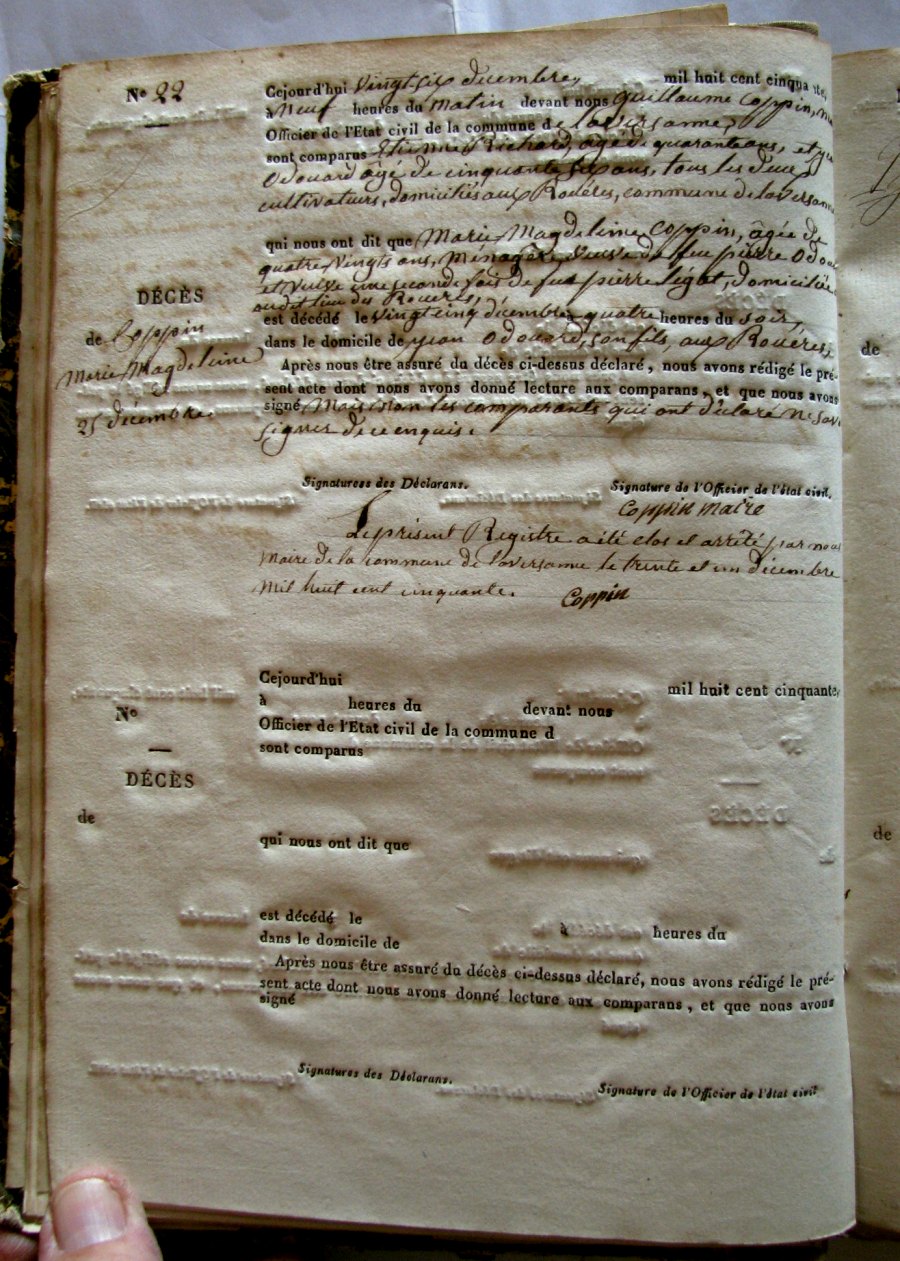 Nº 22
Cejourd'hui vingtsix décembre, mil huit cent cinquante,
à Neuf heures du matin devant nous Guillaume Coppin,
Officier de l'Etat civil de la commune de laversanne,
sont comparus Etienne Richard, âgé de quarante ans, et
Odouard âgé de cinquante six ans, tous les deux
cultivateurs, domiciliés aux Rouéres, commune de laversanne
qui nous ont dit que Marie Magdeleine Coppin, âgée de
quatre Vingts ans, Ménagère, veuve de feu pierre Odou
et veuve une seconde fois de feu pierre légat, domiciliée
audit lieu des Rouéres,
DÉCÈS
est décédé le vingt cinq décembre quatre heures du soir,
de Coppin
dans le domicile de jean Odouard, son fils, aux Rouéres,
Marie Magdeleine
Après nous être assuré du décès ci-dessus déclaré, nous avons rédigé le pré-
sent acte dont nous avons donné lecture aux comparans, et que nous avons
25 décembre.
signé, Mais non les comparants qui ont déclaré ne sav
signer de ce enquis.
Signaturess des Déclarans. Signature de l'Officier de l'état civil.
Coppin maire
Le présent Registre a été clos et arrêté par nous
Maire de la commune de laversanne le trente et un décembre
Mil huit cent cinquante. Coppin
Cejourd'hui mil huit cent cinquante,
à heures du devant nous
Nº
Officier de l'Etat civil de la commune d
sont comparus
DÉCÈS
de
qui nous ont dit que
est décédé le à heures du
dans le domicile de
Après nous être assuré du décès ci-dessus déclaré, nous avons rédigé le pré-
sent acte dont nous avons donné lecture aux comparans, et que nous avons
signé
Signatures des Déclarans. Signature de l'Officier de l'état civil
de
de